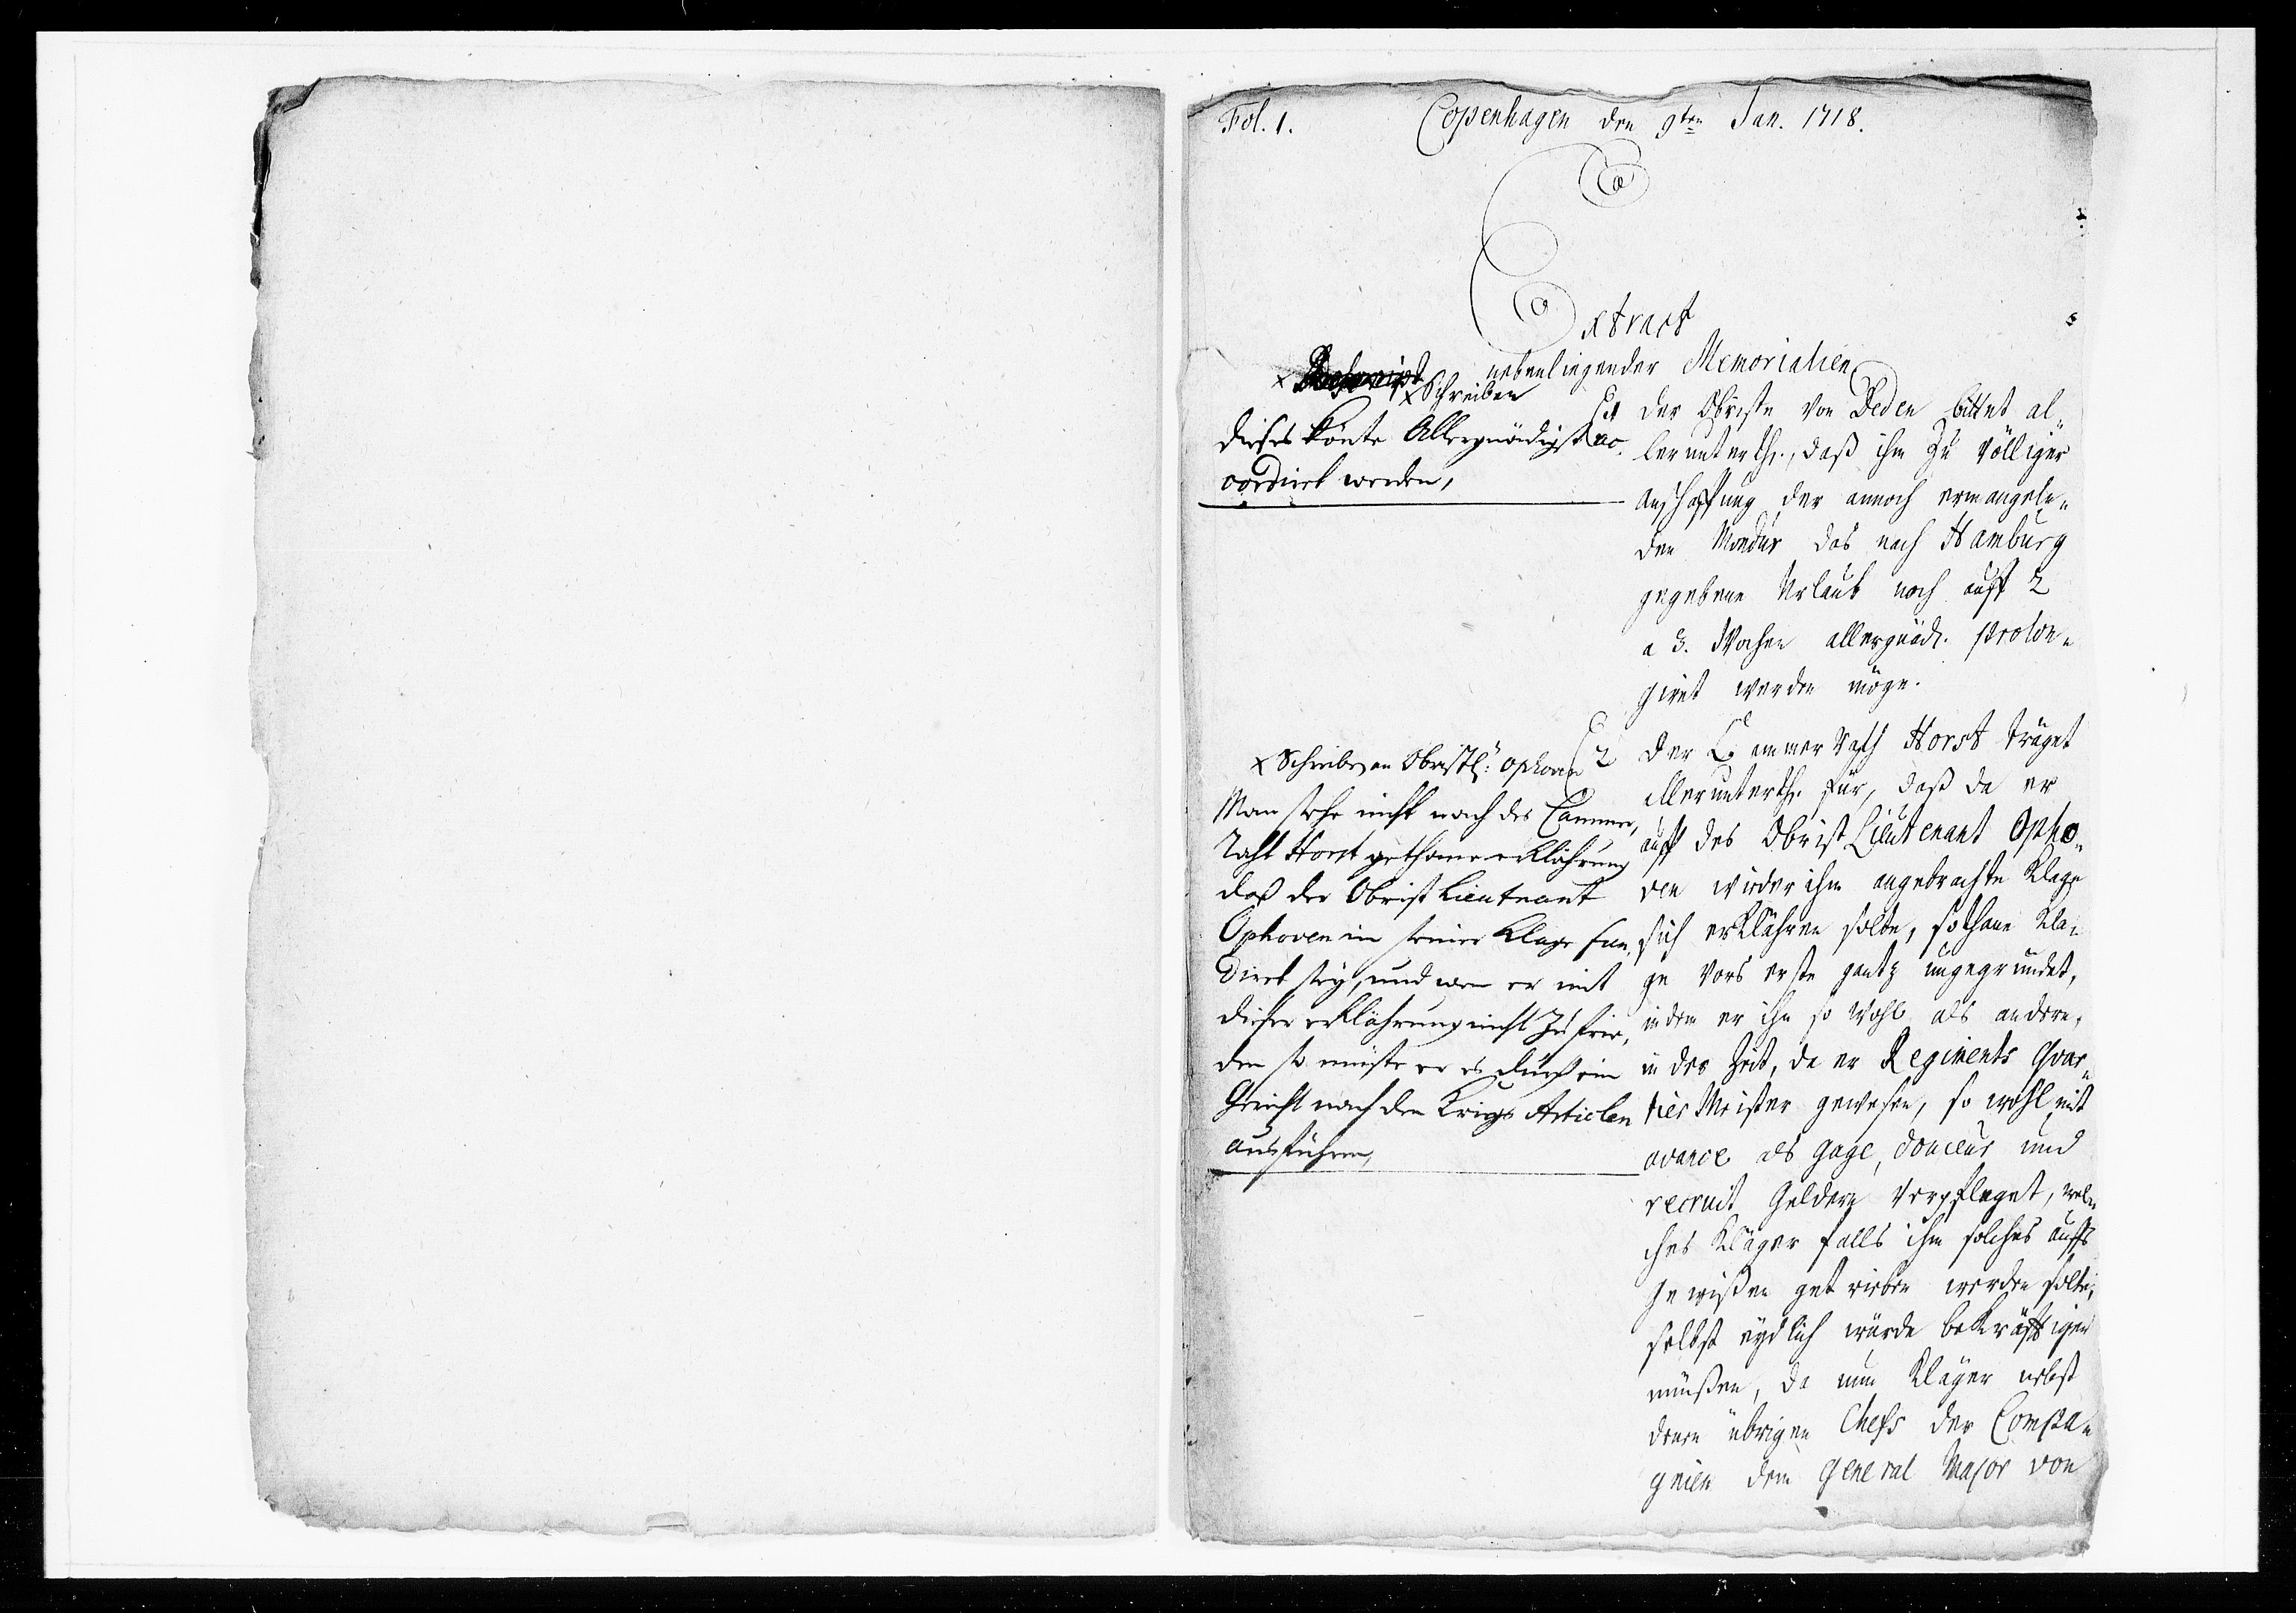 Fol. 1.
Copenhagen den 9ten Jan. 1718.
Extract
nebenliegender Memorialien
x Schreiben
dieses könte Allergnädigst ac¬
cordiret werden,
1
der Obriste von Deden bittet al¬
lerunterth., daß ihm zu völliger
anschaffung der annoch ermangeln¬
den Mondur das nach Hamburg
gegebene Urlaub noch auff 2
a 3. Wochen allergnäd. prolon¬
giret werden möge.
x Schreiben an Obristl: Ophoven
Man sehe nicht nach des Cammer,
Raht Horst gethane erklährung
daß der Obrist Lieutnant
Ophoven in seiner Klage fun,
diret sey, und wen er mit
dieser erklährung nicht zu frie,
den so müste er es durch ein
Gericht nach den Krigs Articlen
ausführen,
2
der Cammer Rath Horst träget
allerunterth. für, daß da er
auff des Obrist Lieutenant Opho¬
ven wieder ihm angebrachte Klage
sich erklähren solte, sothane Kla¬
ge vors erste gantz ungegründet,
indem er ihn so wohl als andere,
in der Zeit, da er Regiments Quar¬
tier Meister gewesen, so wohl mit
avance als gage, douceur und
recruit Geldern verpfleget, wel¬
ches Kläger falls ihm solches auffs
Gewißen getrieben werden solte,
selbst eydlich würde bekräfftigen
müßen, da nun Kläger nebst
denen übrigen Chefs der Compa¬
gnien dem General Major von